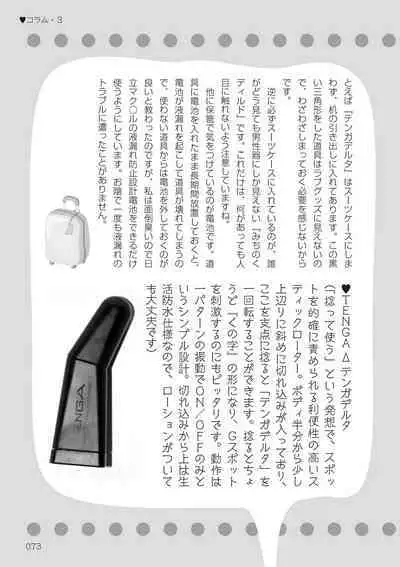 ♥コラム・3
とえば『テンガデルタ』はスーツケースにしま
わず、机の引き出しに入れてあります。この黒
い三角形をした道具はラブグッズに見えないの
で、わざわざしまっておく必要を感じないから
です。
　逆に必ずスーツケースに入れているのが、誰
がどう見ても男性器にしか見えない『みちのく
ディルド』です。これだけは、何があっても人
目に触れないよう注意していますね。
　他に保管で気をつけているのが電池です。道
具に電池を入れたまま長期間放置しておくと、
電池が液漏れを起こして道具が壊れてしまうの
で、使わない道具からは電池を外しておくのが
良いと教わったのですが、私は面倒臭いので日
立マク○ルの液漏れ防止設計電池をできるだけ
使うようにしています。お陰で一度も液漏れの
トラブルに遭ったことがありません。
♥TENGA Δ テンガデルタ
「捻って使う」という発想で、スポッ
トを的確に責められる利便性の高いス
ティックローター。ボディ半分から少し
上辺りに斜めに切れ込みが入っており、
ここを支点に捻ると「テンガデルタ」を
一回転することができます。捻るとちょ
うど「くの字」の形になり、Gスポット
を刺激するのにもピッタリです。動作は
一パターンの振動でON／OFFのみと
いうシンプル設計。切れ込みから上は生
活防水仕様なので、ローションがついて
も大丈夫です）
TENGA
073